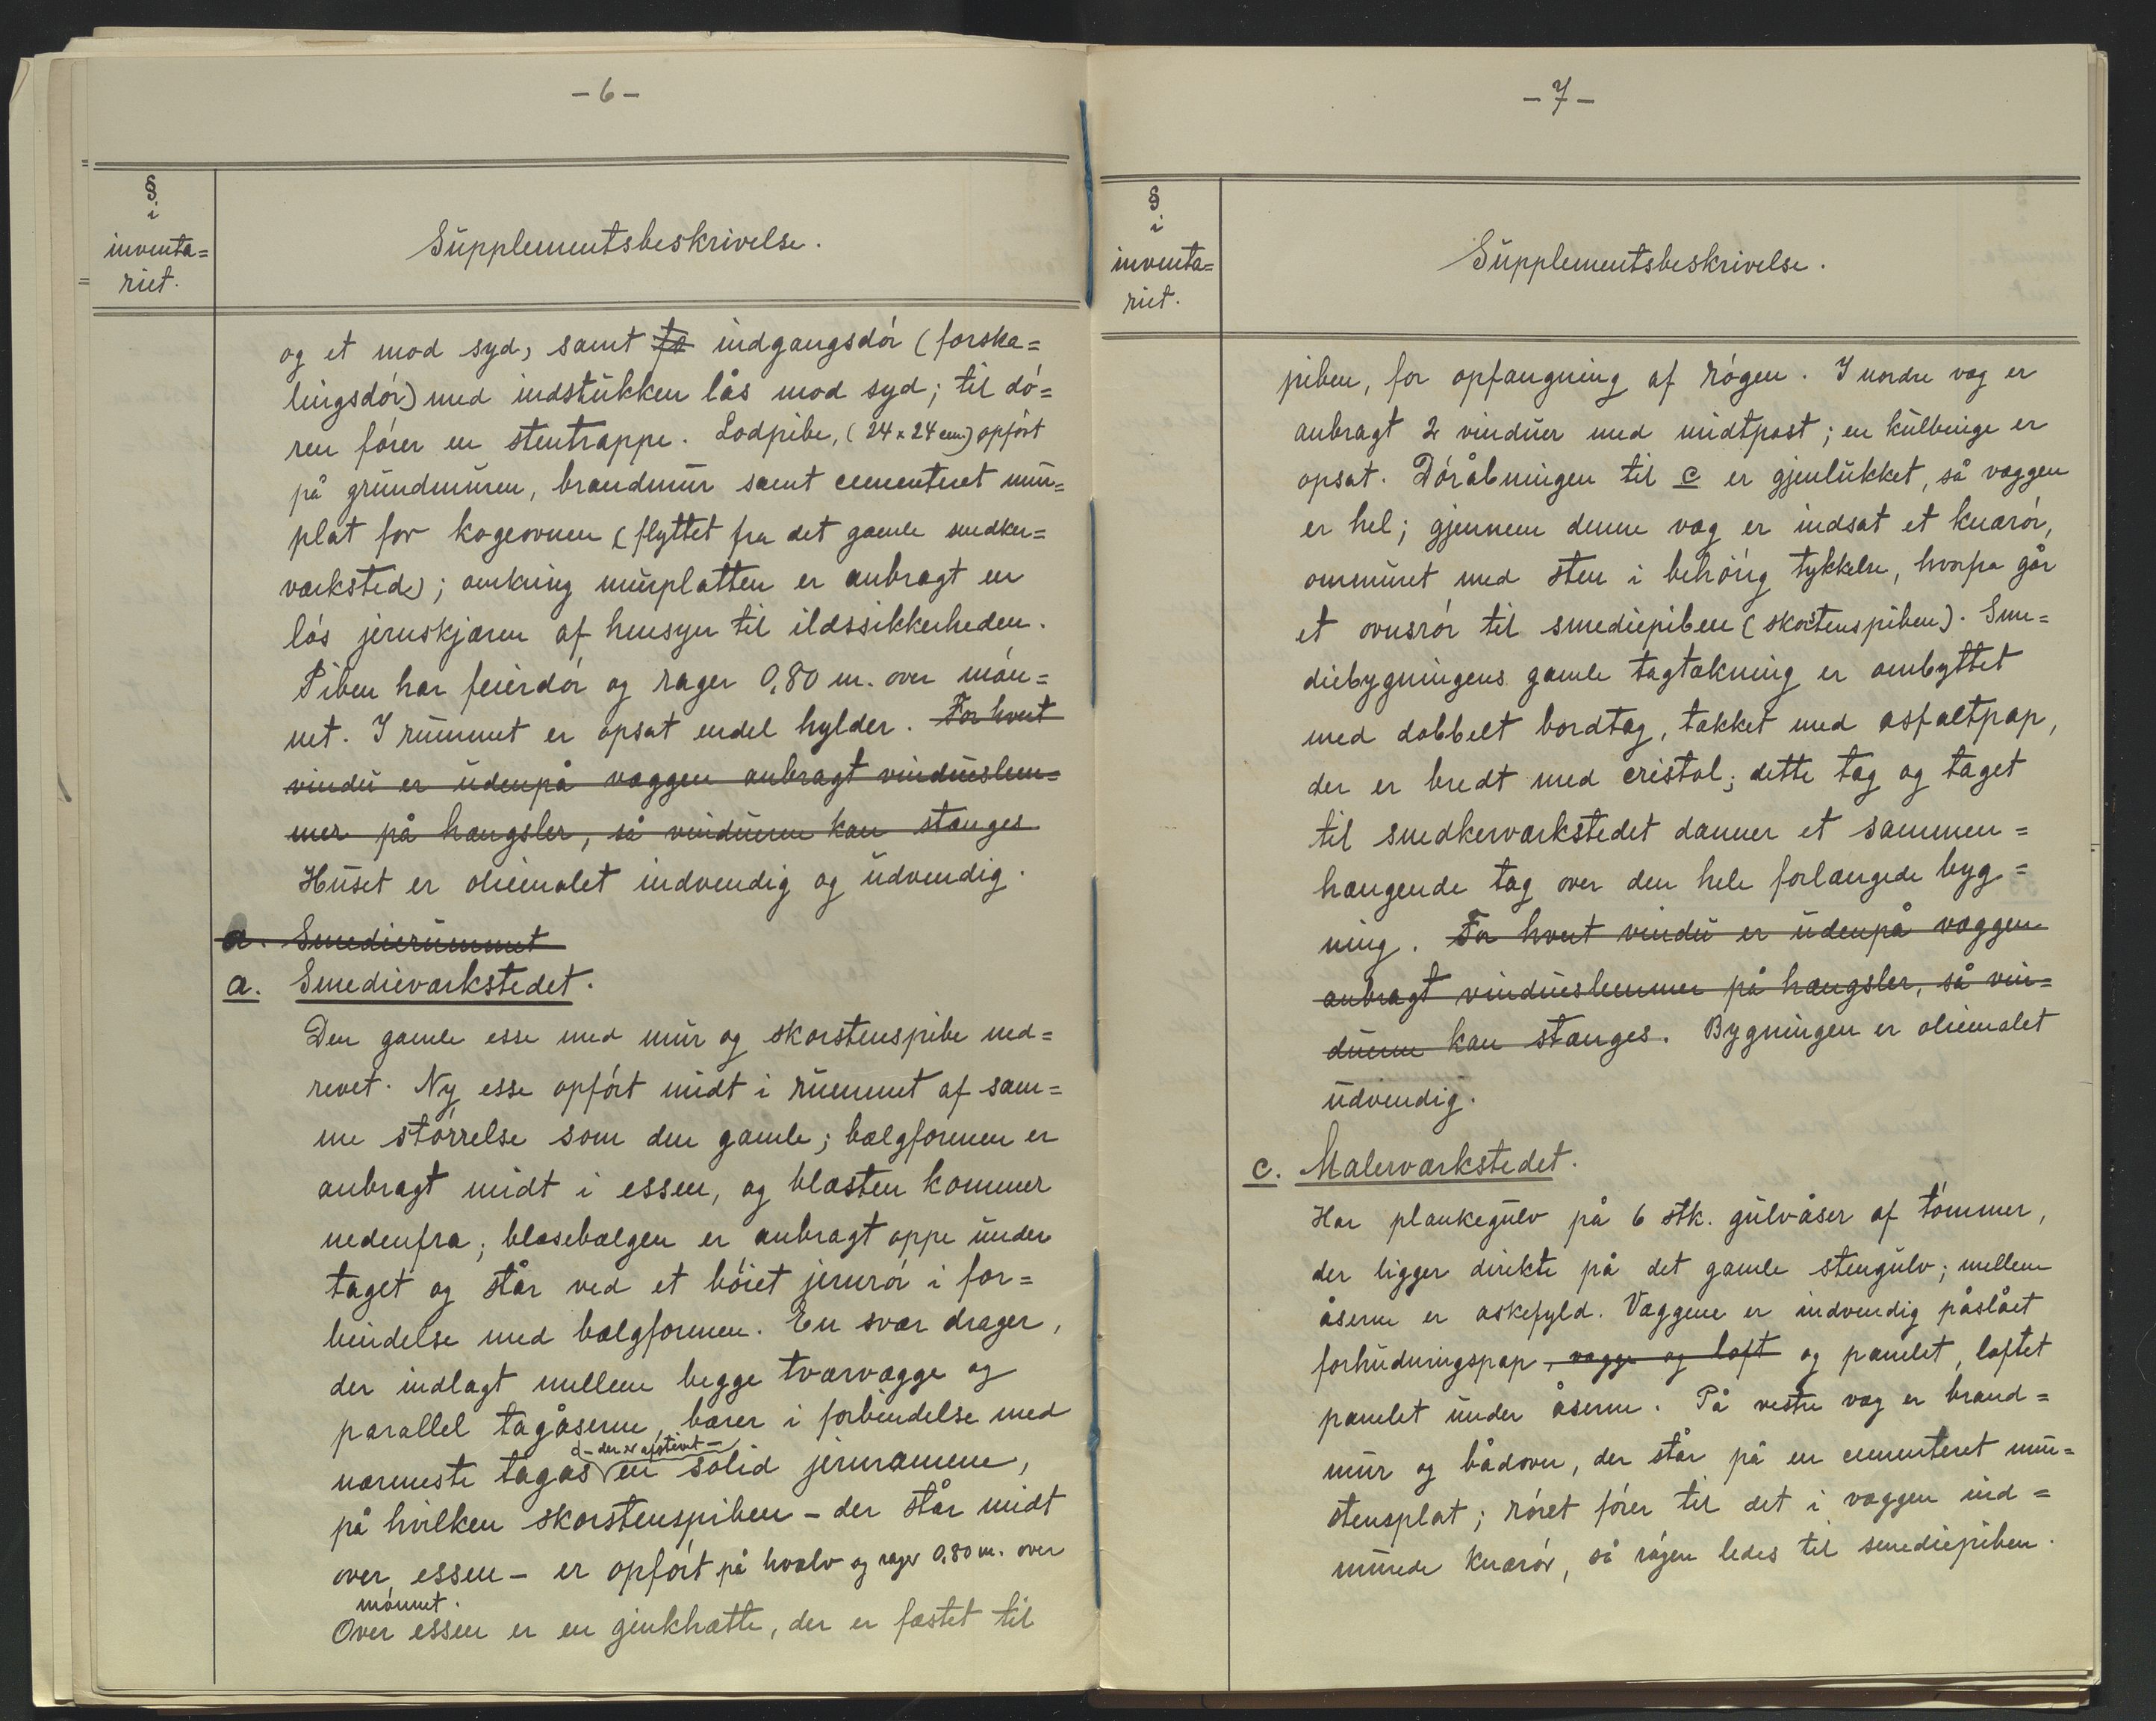 - 6 -
§
i
inventa=
riet.
Supplementsbeskrivelse.
og et mod syd, samt to indgangsdór (forska=
lingsdór) med indstukken lås mod syd; til dó=
ren fórer en stentrappe. Lodpibe, (24 x 24 cm.) opfórt
på grundmuren, brandmur samt cementeret mur=
plat for kogeovnen (flyttet fra det gamle snedker=
værksted); omkring murplatten er anbragt en
lós jernskjærm af hensyn til ildssikkerheden.
Piben har feierdór og rager 0,80 m. over món=
net. I rummet er opsat endel hylder. For hvert
vindu er udenpå væggen anbragt vindueslem=
mer på hængsler, så vinduerne kan stænges
Huset er oliemalet indvendig og udvendig.
a. Smedierummet
a. Smedieværkstedet.
Den gamle esse med mur og skorstenspibe ned=
revet. Ny esse opfórt midt i rummet af sam=
me stórrelse som den gamle; bælgformen er
anbragt midt i essen, og blæsten kommer
nedenfra; blæsebælgen er anbragt oppe under
taget og står ved et bóiet jernrór i for=
bindelse med bælgformen. En svær drager,
der indlagt mellem begge tværvægge og
parallel tagåserne, bærer i forbindelse med
- der er afstivet -
nærmeste tagås en solid jernramme,
på hvilken skorstenspiben - der står midt
over essen - er opfórt på hvælv og rager 0,80 m. over
mónnet.
Over essen er en zinkhætte, der er fæstet til
- 7 -
§
i
inventa=
riet.
Supplementsbeskrivelse.
piben, for opfangning af rógen. I nordre væg er
anbragt 2 vinduer med midtpost; en kulbinge er
opsat. Dóråbningen til c er gjenlukket, så væggen
er hel; gjennem denne væg er indsat et knærór,
ommuret med sten i behórig tykkelse, hvorfra går
et ovnsrór til smediepiben (skorstenspiben). Sme=
diebygningens gamle tagtækning er ombyttet
med dobbelt bordtag, tækket med asfaltpap,
der er bredt med cristol; dette tag og taget
til snedkerværkstedet danner et sammen=
hængende tag over den hele forlængede byg=
ning. For hvert vindu er udenpå væggen
anbragt vindueslemmer på hængsler, så vin=
duerne kan stænges. Bygningen er oliemalet
udvendig.
c. Malerværkstedet.
Har plankegulv på 6 stk. gulvåser af tómmer,
der ligger direkte på det gamle stengulv; mellem
åserne er askefyld. Væggene er indvendig påslået
forhudningspap, vægge og loft og panelet, loftet
panelet under åserne. På vestre væg er brand=
mur og bådovn, der står på en cementeret mur=
stensplat; róret fórer til det i væggen ind=
murede knærór, så rógen ledes til smediepiben.